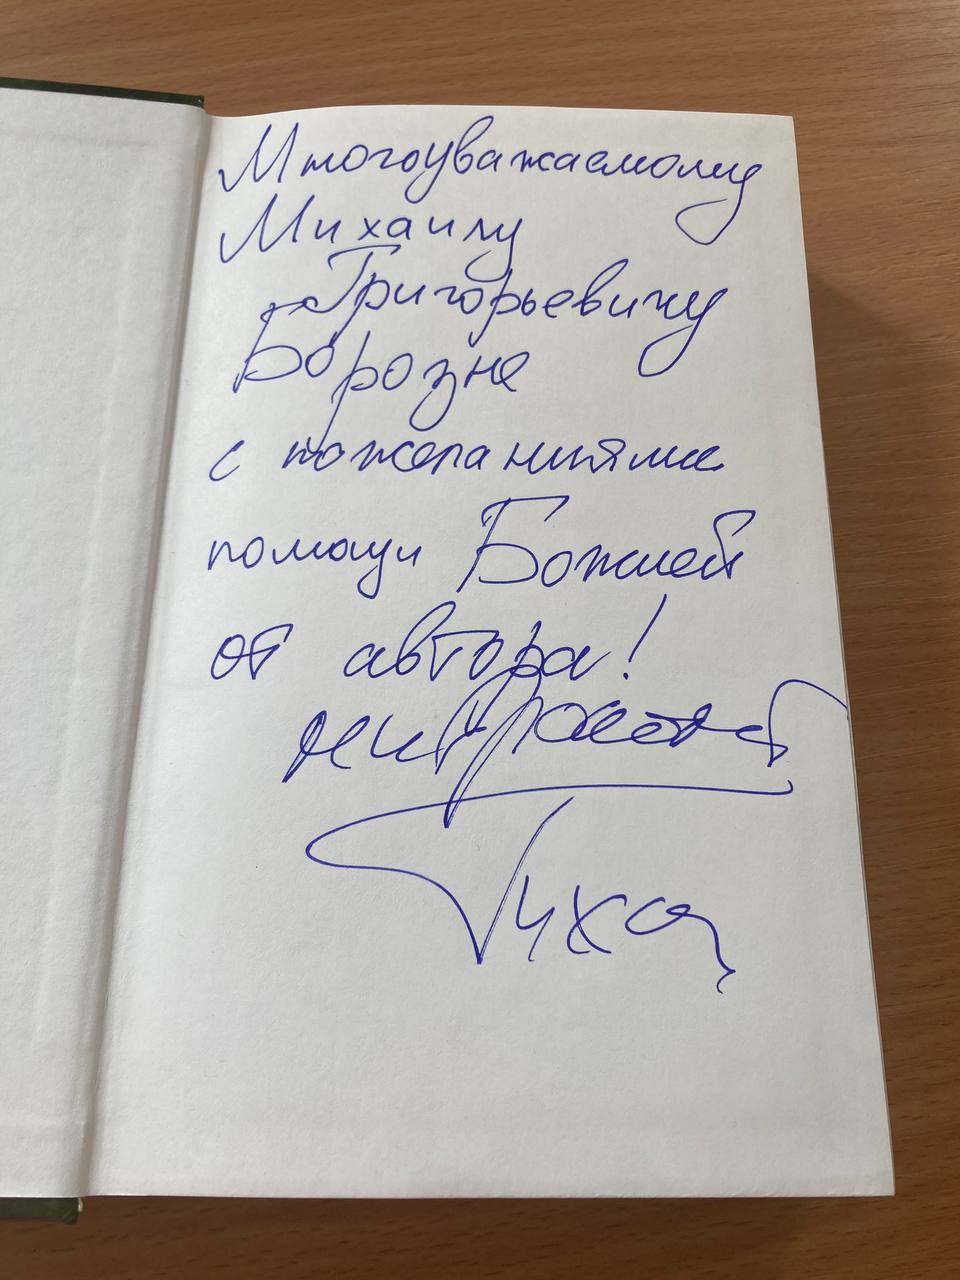 Многоуважаемому
Михаилу
Григорьевичу
Борозне
с пожеланиями
помощи Божией
от автора!
митрополит
Тихон